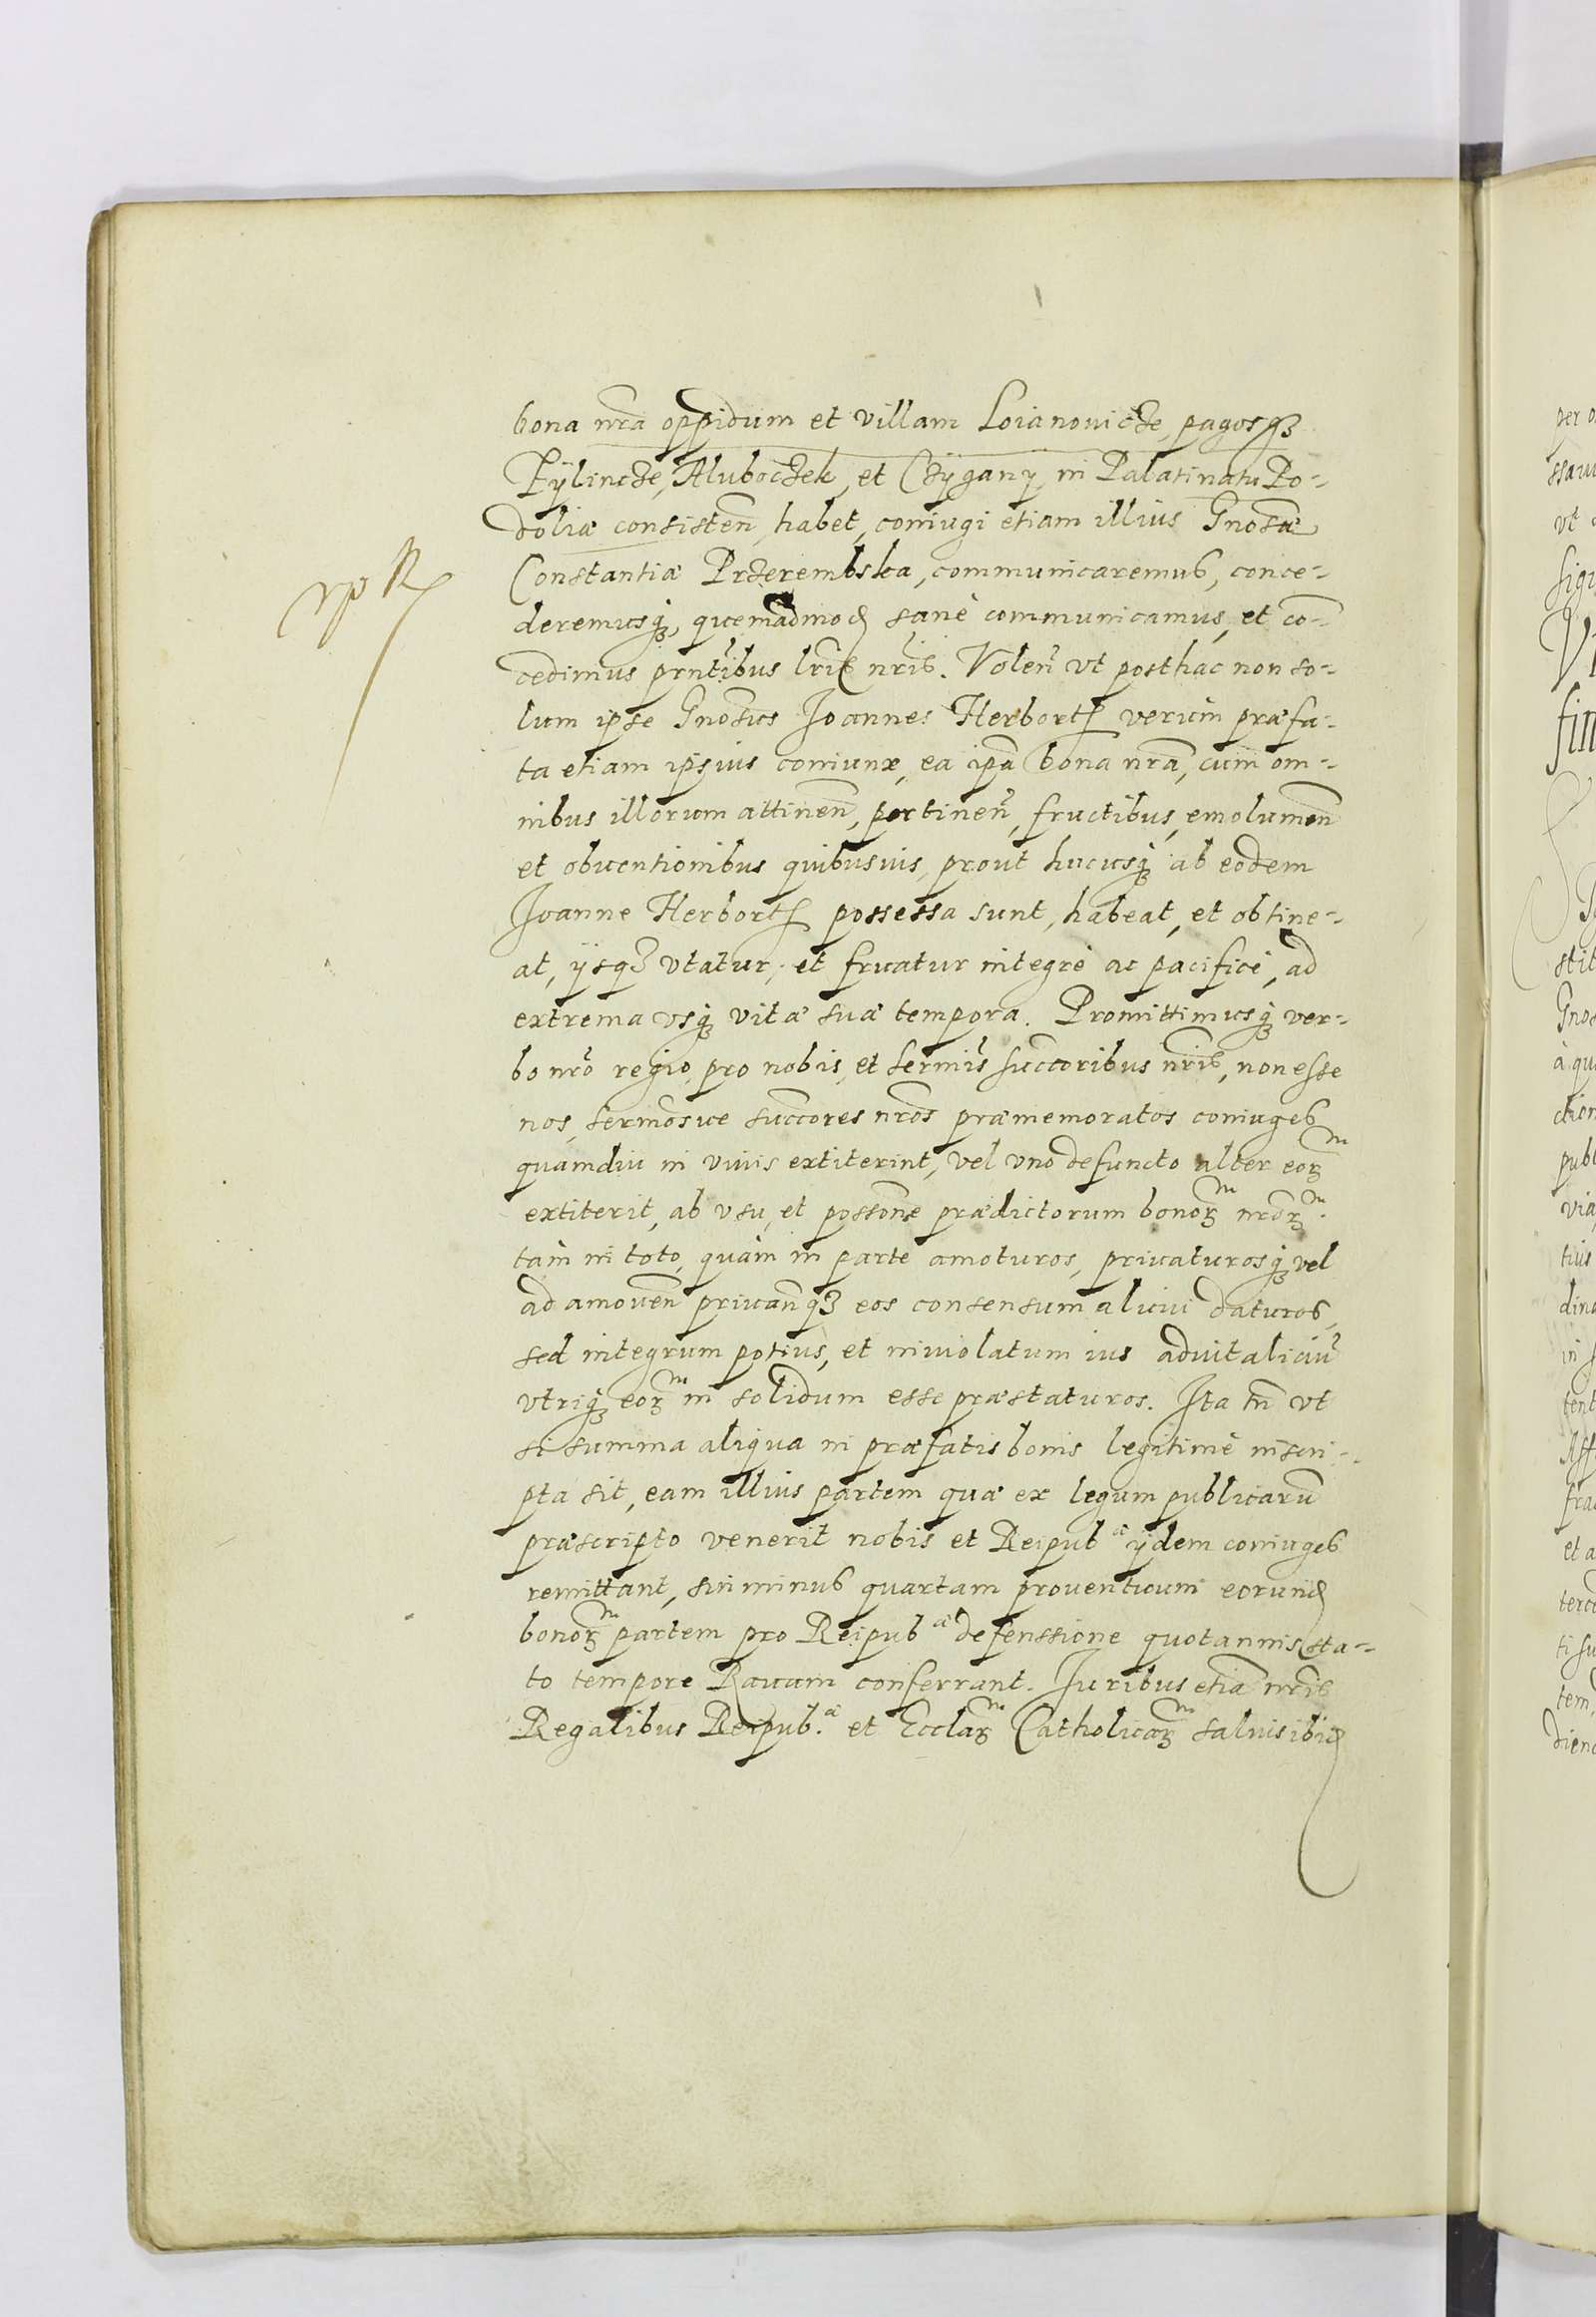 bona nra oppidum et villam Loianovicze, pagosq3
Pÿlincze, Hluboczek, et Czÿgany, in Palatinatu Po-
doliæ consisten, habet, coniugi etiam illius Gnosæ
Constantiæ Przerembska, communicaremus, conce-
deremusq3, quemadmod sanè communicamus, et co-
cedimus prntibus lris nris. Volen vt posthac non so-
lum ipse Gnosus Joannes Herborth verum præfa-
ta etiam ipsius coniunx, ea ipa bona nra, cum om-
nibus illorum attinen, pertinen, fructibus, emolumen
et obuentionibus quibusuis, prout hucusq3 ab eodem
Joanne Herborth possessa sunt, habeat, et obtine-
at, ijsq3 vtatur, et fruatur integrè ac pacificè, ad
extrema vsq3 vitæ suæ tempora. Promittimusq3 ver-
bo nro regio, pro nobis, et sermis succoribus nris, non esse
nos, sermosue succores nros præmemoratos coniuges
quamdiu in viuis extiterint, vel vno defuncto alter eorum
extiterit, ab vsu, et possone prædictorum bonorum nrorum
tam in toto, quàm in parte amoturos, priuaturosq3 vel
ad amouen priuanq3 eos consensum alicui daturos,
sed integrum potius, et inuiolatum ius aduitaliciu
vtriq3 eorum in solidum esse præstaturos. Ita tn vt
si summa aliqua in præfatis bonis legitimè inscri-
pta sit, eam illius partem quæ ex legum publicaru
præscripto venerit nobis et Reipubæ ijdem coniuges
remittant, sin minus quartam prouentuum eorund
bonorum partem pro Reipubæ defenssione quotannis sta-
to tempore Rauam conferrant. Juribus etia nris
Regalibus Reipub.æ et Ecclarum Catholicarum saluis ibid